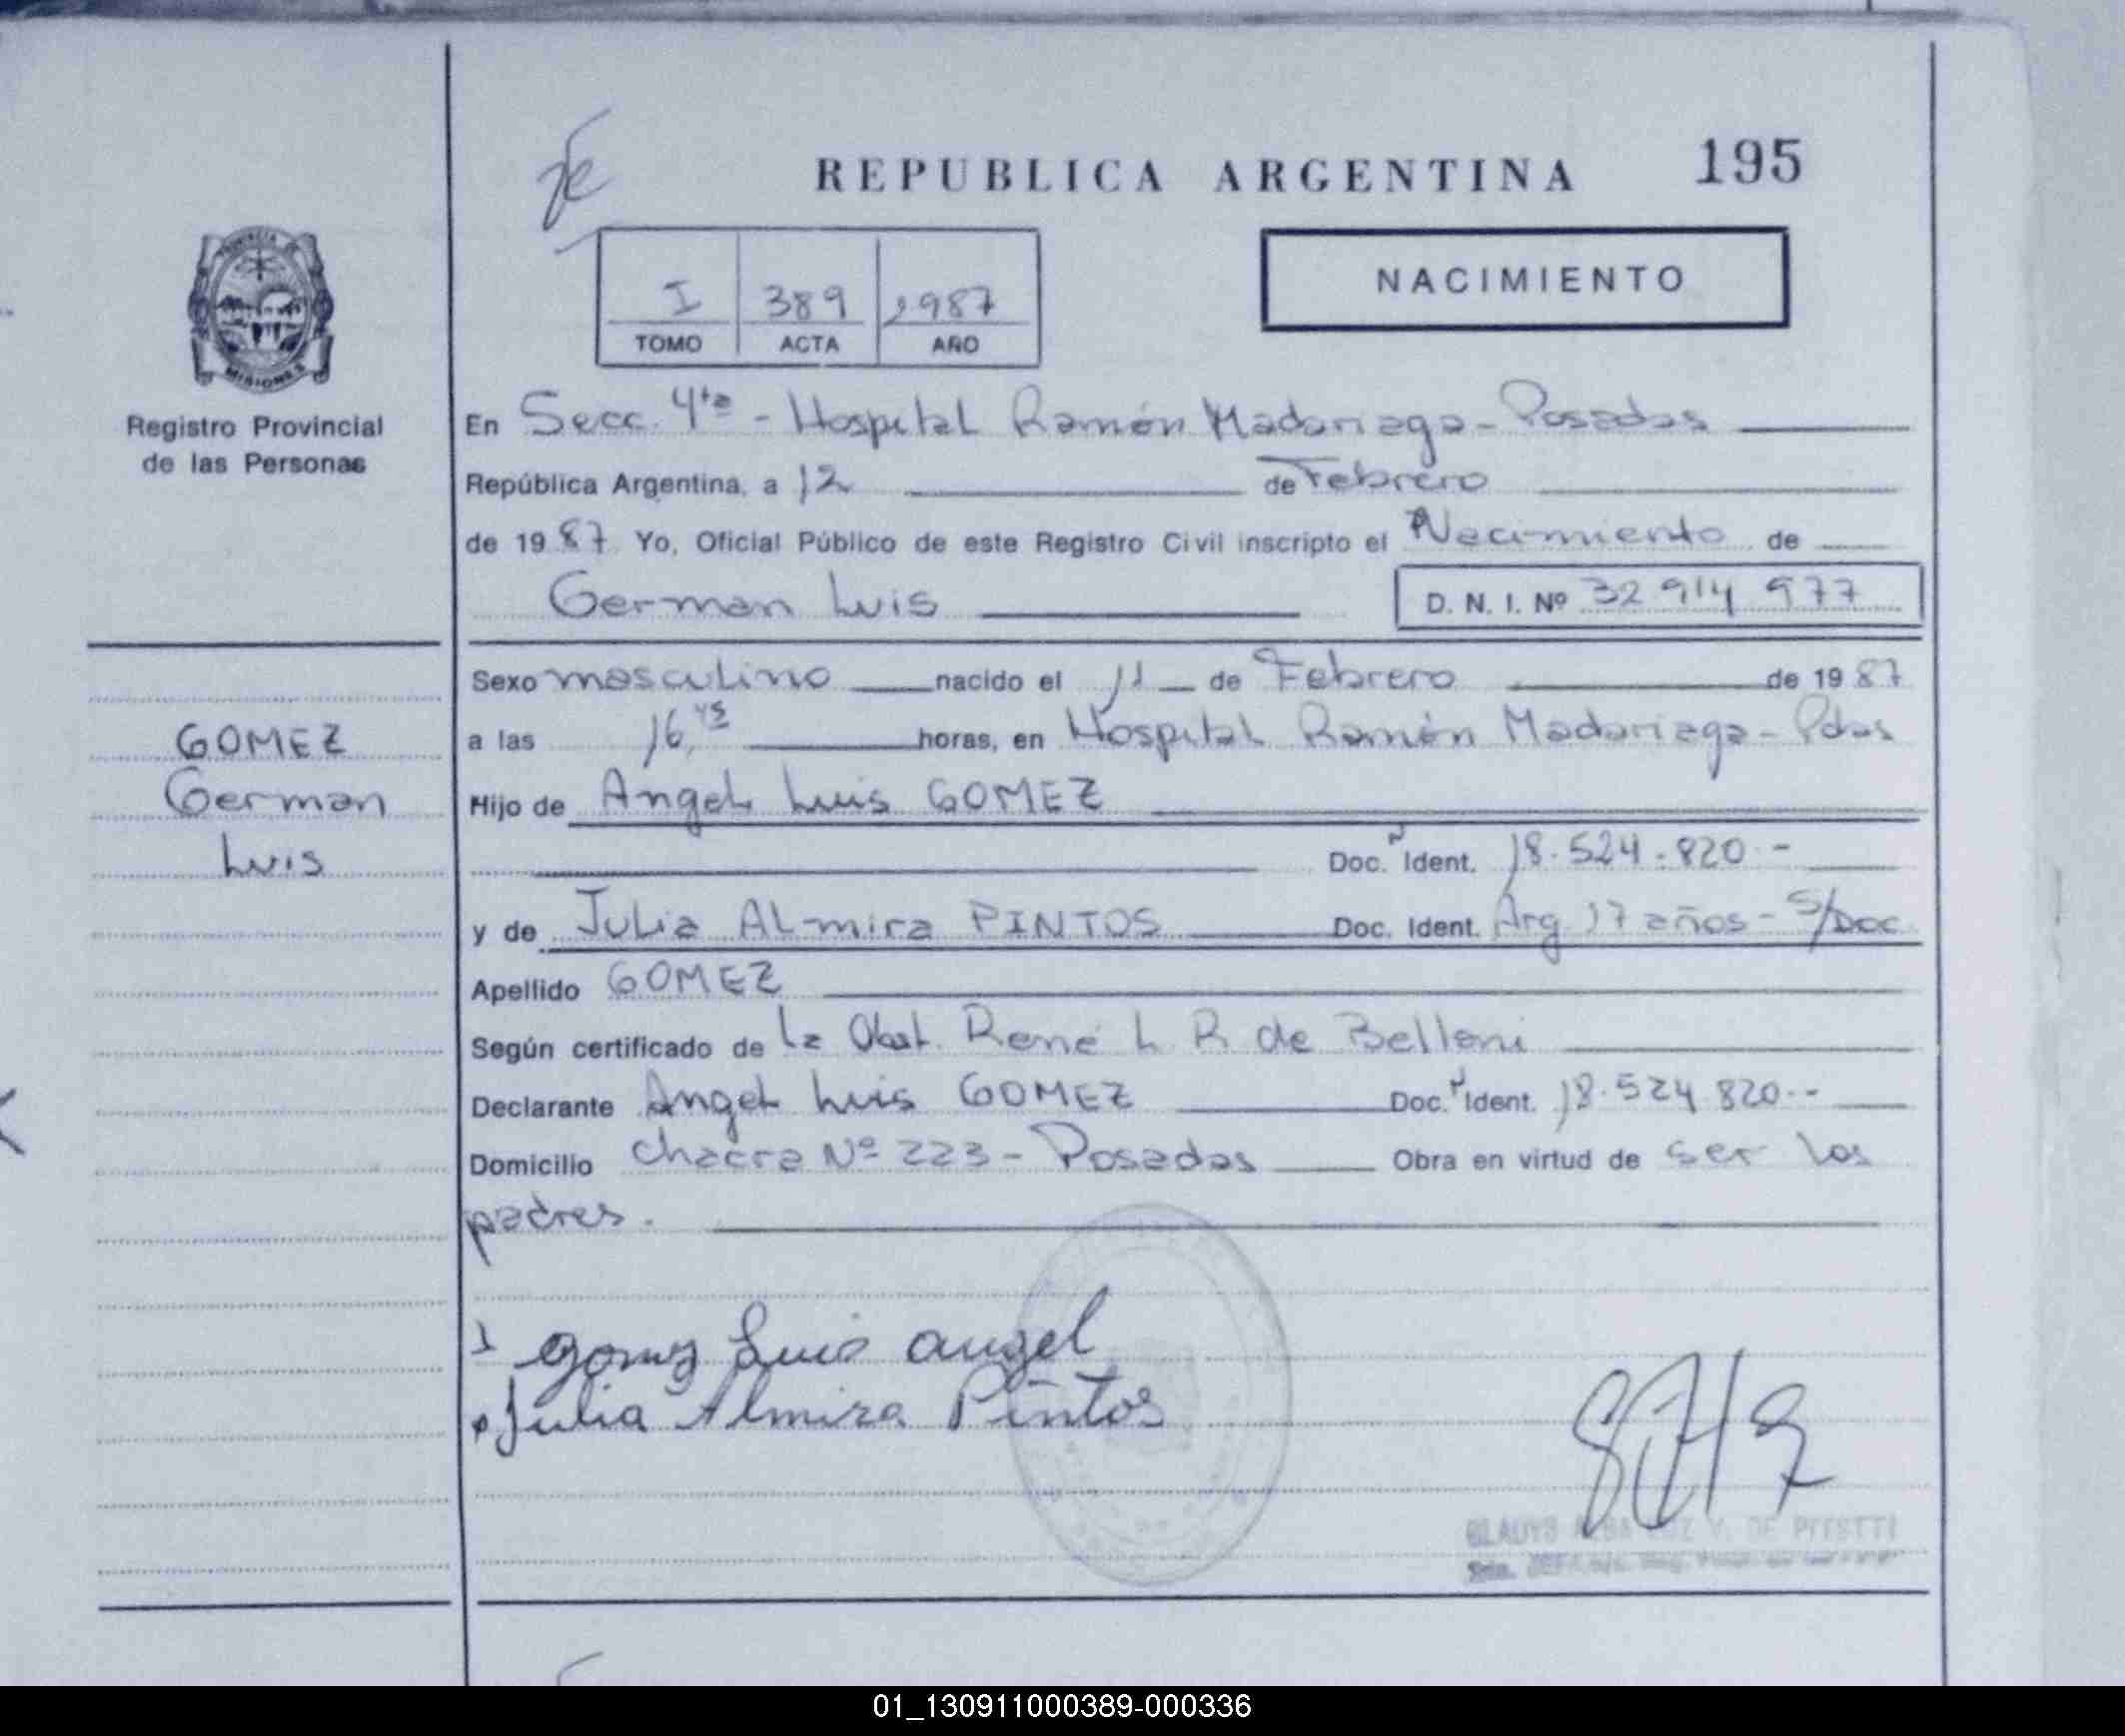 REPUBLICA ARGENTINA 195
NACIMIENTO
I 389 1987
TOMO ACTA AÑO
PROVINCIA
MISIONES
Registro Provincial
de las Personas
En Secc. 4ta - Hospital Ramón Madariaga - Posadas
República Argentina, a 12 de Febrero
de 1987 Yo, Oficial Público de este Registro Civil inscripto el Nacimiento de
German Luis D. N. I. Nº 32 914 977
Sexo masculino nacido el 11 de Febrero de 1987
a las 16,45 horas, en Hospital Ramón Madariaga - Pdas
Hijo de Angel Luis GOMEZ
Doc. Ident. 18.524.820 -
y de Julia Almira PINTOS Doc. Ident. Arg 17 años - S/Doc
Apellido GOMEZ
Según certificado de la Obst. René L R de Belloni
Declarante Angel Luis GOMEZ Doc. Ident. 18.524.820.-
Domicilio Chacra Nº 223 - Posadas Obra en virtud de ser los
padres.
GOMEZ
German
Luis
Gomez Luis angel
Julia Almira Pintos
GLADYS ALBA DE
01_130911000389-000336